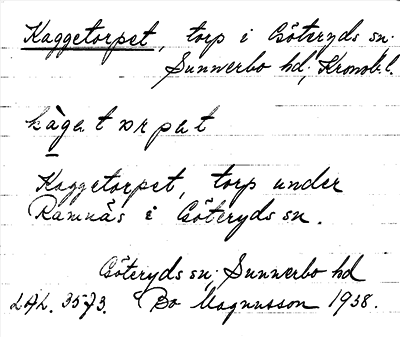 Kaggetorpet, torp i Göteryds sn.
Sunnerbo hd, Kronob. l.
kàgat ɒrpat
Kaggetorpet, torp under
Ramnäs i Göteryds sn.
Göteryds sn, Sunnerbo hd
LAL. 3573. Bo Magnusson 1938.